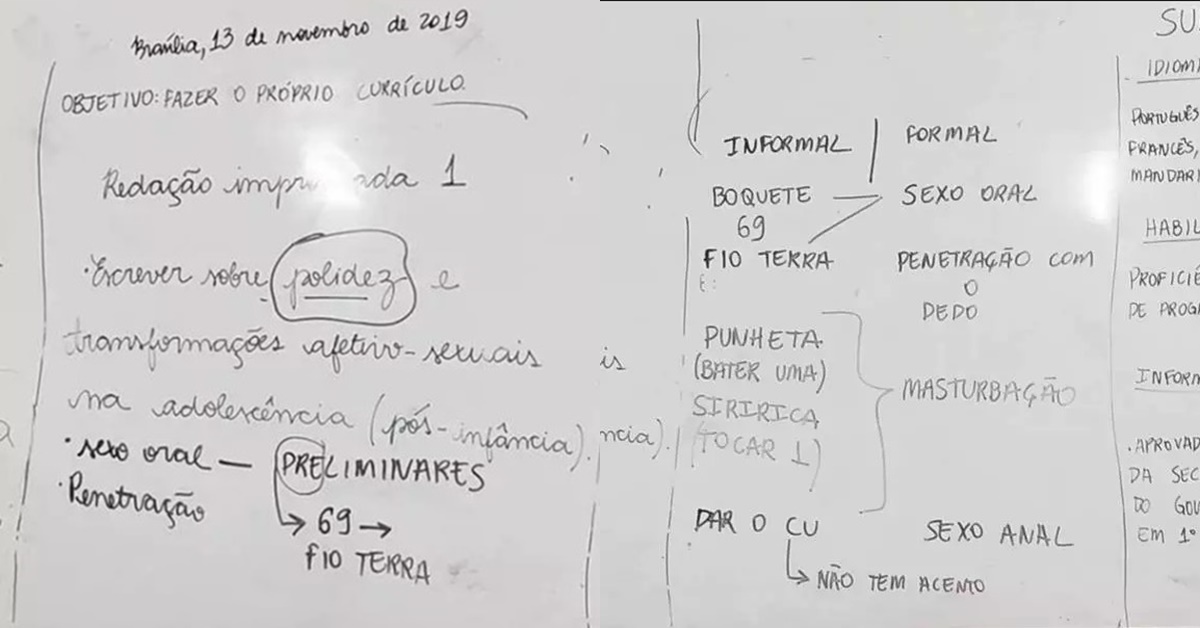 Brasília, 13 de novembro de 2019
OBJETIVO: FAZER O PRÓPRIO CURRÍCULO.
Redação 1
• Escrever sobre polidez e
transformações afetivo-sexuais
na adolescência (pós-infância).
• sexo oral — PRELIMINARES
• Penetração
→ 69 →
FIO TERRA
is
ncia).
INFORMAL | FORMAL
BOQUETE — SEXO ORAL
69
FIO TERRA PENETRAÇÃO COM
O
DEDO
E:
PUNHETA
(BATER UMA)
MASTURBAÇÃO
SIRIRICA
(TOCAR 1)
DAR O CU SEXO ANAL
→ NÃO TEM ACENTO
SU
IDIOM
PORTUGUÊS
FRANCÊS,
MANDARI
HABIL
PROFICIÊ
DE PROGR
INFORM
. APROVAD
DA SEC
DO GOV
EM 1º